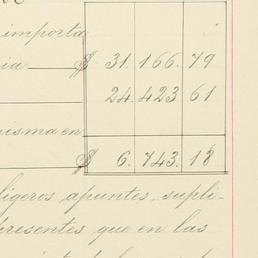 importa
ia $ 31.166.79
24.423 61
misma en
$ 6.743.18
ligeros apuntes, supli-
presentes que en las